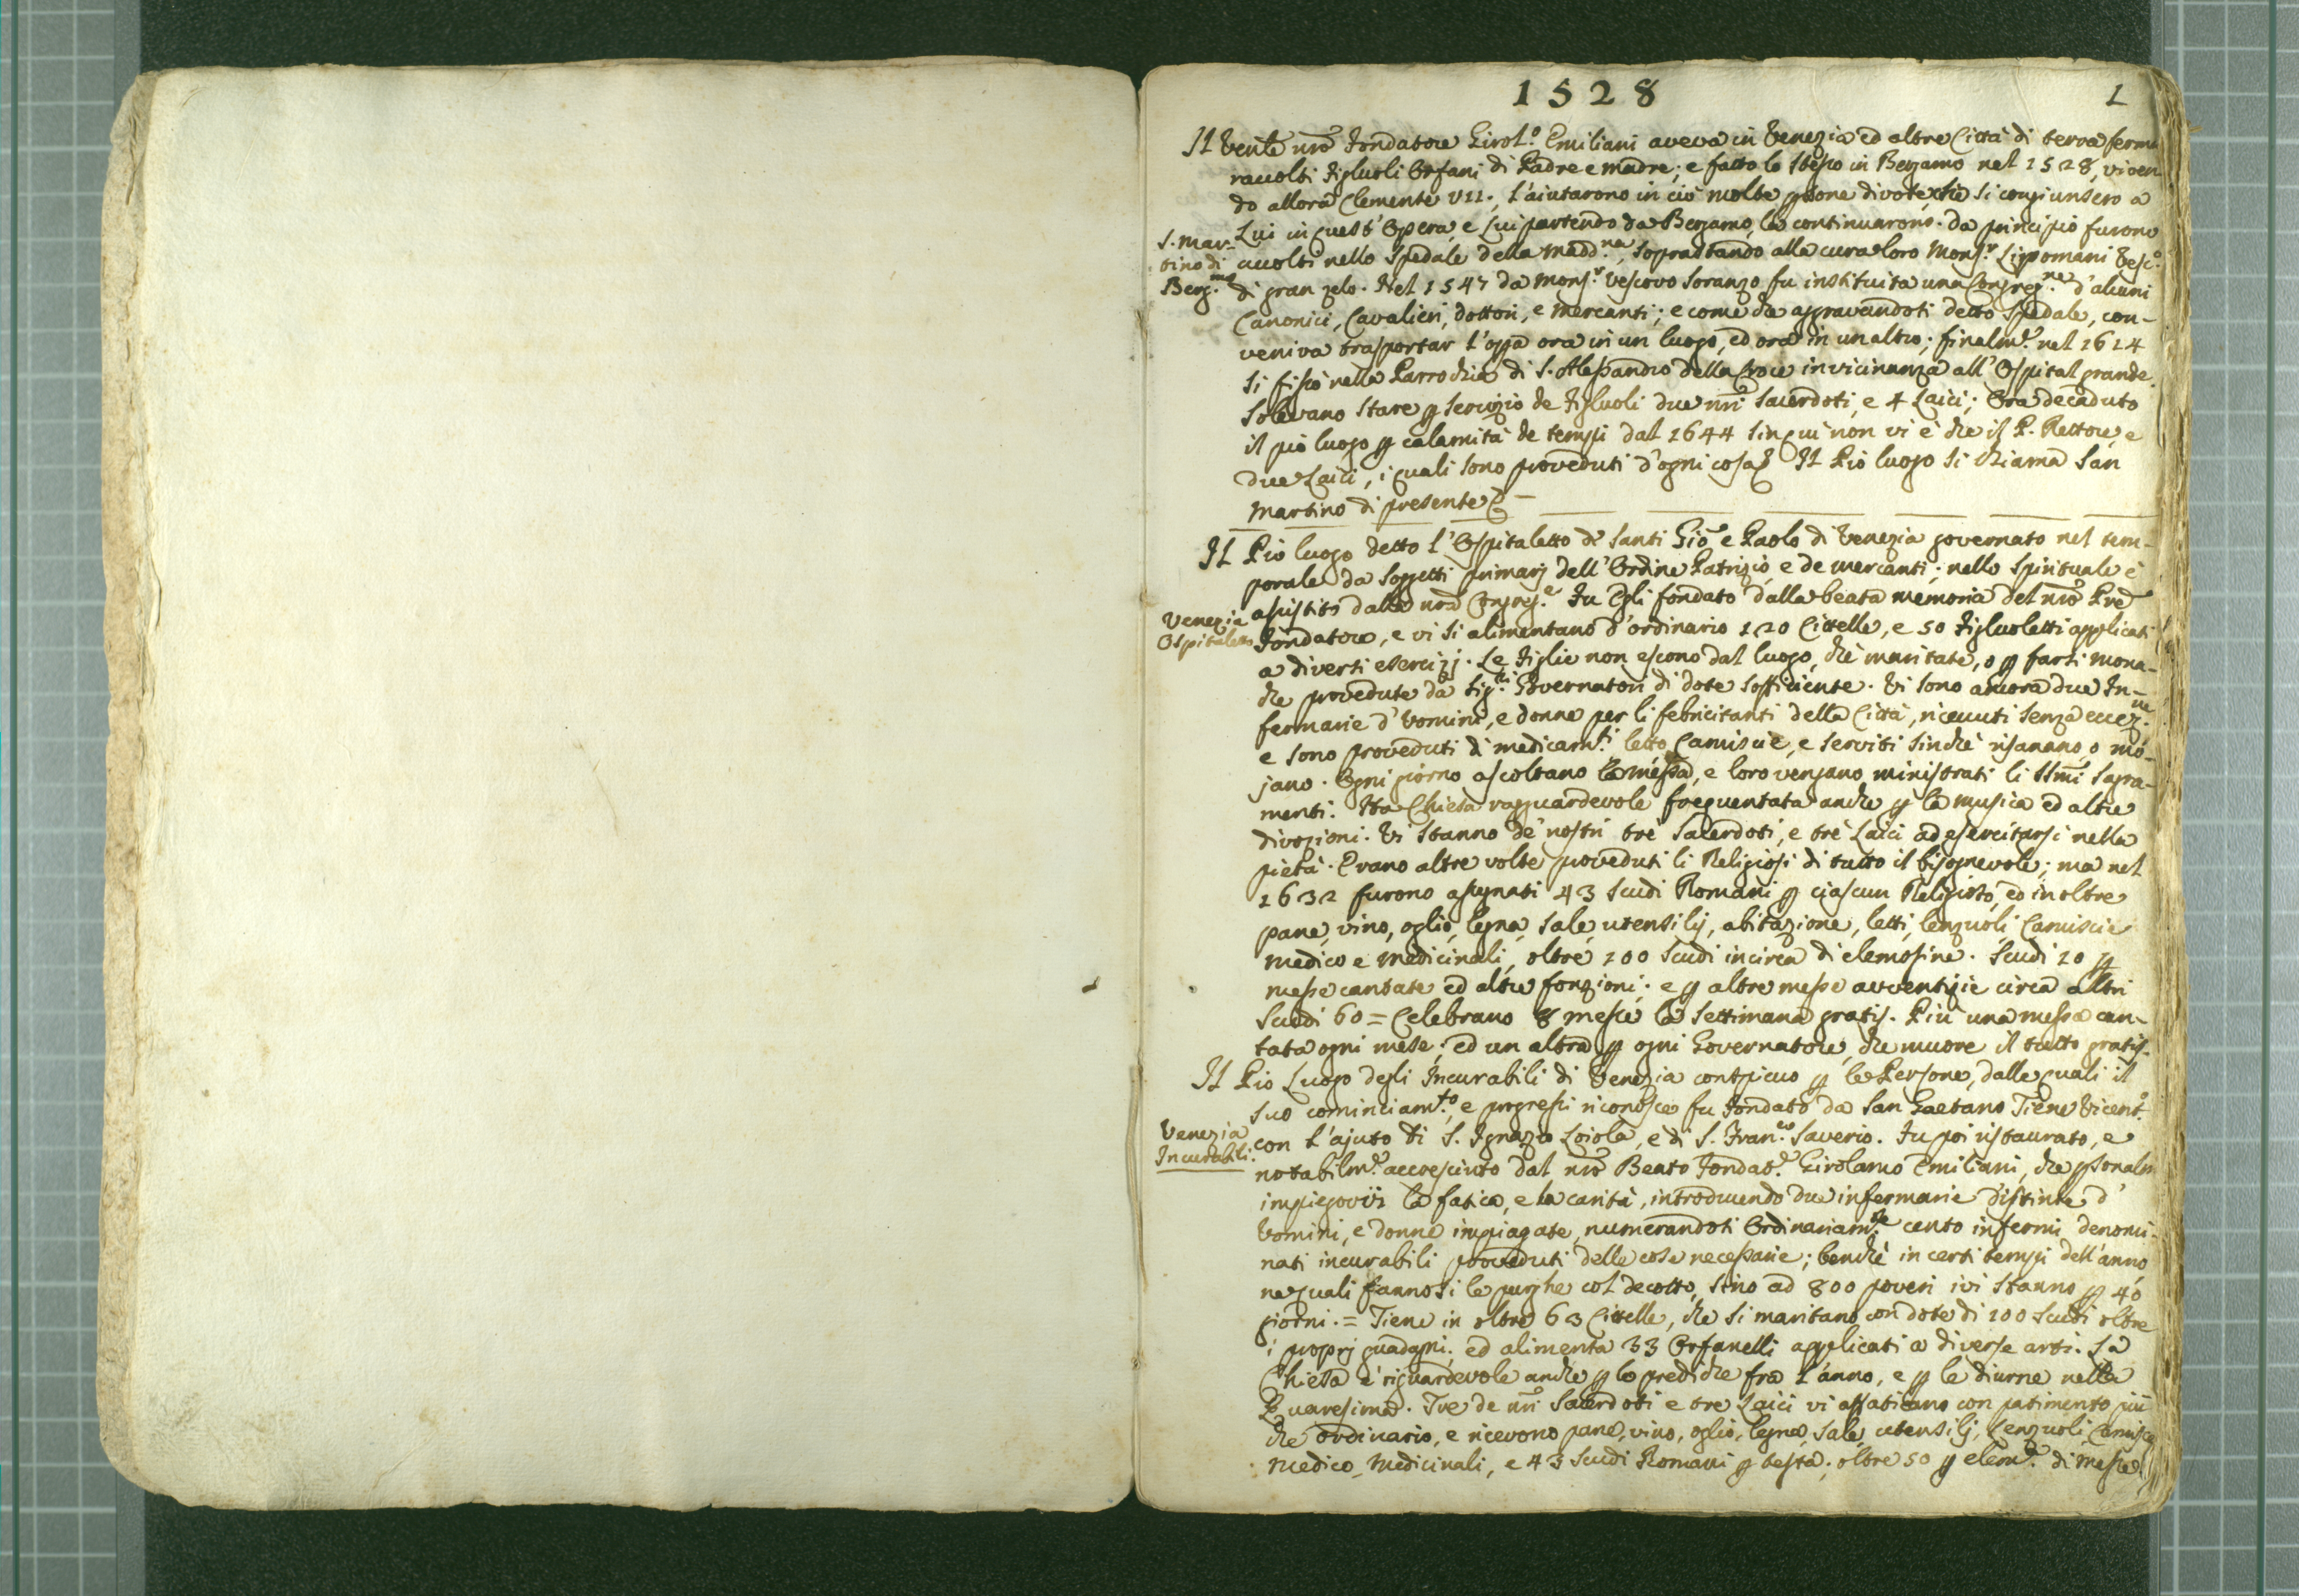 1528
1
Il Venle nro Fondatore Girol.o Emiliani aveva in Venezia ed altre Città di terra ferma
raccolti Figluoli Orfani di Padre e madre; e fatto lo stesso in Bergamo nel 1528, viven
do allora Clemente VII., l'aiutarono in ciò molte psone divote, che si congiunsero a
Lui in quest'Opera, e Lui partendo da Bergamo, la continuarono. Da principio furono
S. Mar-
tino di
Berg.mo
accolti nello Spedale della Madd.na, soprastando alla cura loro Mons.r Lippomani Vesc.o
di gran zelo. Nel 1547 da Mons.r Vescovo Soranzo fu instituita una Congreg.ne d'alcuni
Canonici, Cavalieri, dottori, e Mercanti; e come che aggravandosi detto Spedale, con-
veniva trasportar l'opa ora in un luogo, ed ora in un altro; finalm.e nel 1624
si fissò nella Parrochia di S. Alessandro della Croce in vicinanza all'Ospital grande.
Solevano stare p servizio de Figluoli due nri Sacerdoti, e 4 Laici; Ora decaduto
il pio luogo p calamità de tempi dal 1644 sin qui non vi è che il P. Rettore, e
due Laici, i quali sono proveduti d'ogni cosa. Il Pio luogo si chiama San
Martino di presente
Il Pio luogo detto l'Ospitaletto de Santi Gio e Paolo di Venezia governato nel tem-
porale da Soggetti primarj dell'Ordine Patrizio, e de mercanti; nello spirituale è
assistito dalla nra Congreg.e Fu Egli fondato dalla beata memoria del nro Pre
Venezia
Ospitaletto
Fondatore, e vi si alimentano d'ordinario 120 Cittelle, e 50 Figluoletti applicati
a diversi esercizj. Le Figlie non escono dal luogo, che maritate, o p farsi mona-
che provedute da Sig.ri Governatori di dote sofficiente. Vi sono ancora due In-
fermarie d'Uomini, e donne per li febricitanti della Città, ricevuti senza eccez.ne
e sono proveduti di medicam.ti letto, Camiscie, e serviti sinchè risanano, o mo-
jano. Ogni giorno ascoltano la messa, e loro vengano ministrati li SSmi Sagra-
menti. Ha Chiesa ragguardevole frequentata anche p la musica ed altre
divozioni. Vi stanno de nostri trè Sacerdoti, e trè Laici ad esercitarsi nella
pietà. Erano altre volte proveduti li Religiosi di tutto il bisognevole; ma nel
1632 furono assegnati 43 Scudi Romani p ciascun Religioso, ed in oltre
pane, vino, oglio, legna, sale, utensilj, abitazione, letti, lenzuoli, Camiscie
medico e medicinali, oltre 100 scudi incirca di elemosine. Scudi 20 p
messe cantate ed altre fonzioni; e p altre messe avventizie circa altri
Scudi 60 = Celebrano 8 messe la settimana gratis. Più una messa can-
tata ogni mese; ed un altra p ogni Governatore, che muore il tutto gratis.
Il Pio Luogo degli Incurabili di Venezia conspicuo p le Persone, dalle quali il
suo cominciam.to, e progressi riconosce fu Fondato da San Gaetano Tiene Vicent.o
Venezia
Incurabili.
con l'ajuto di S. Ignazio Loiola, e di S. Fran.co Saverio. Fu poi ristaurato, e
notabilm.e accresciuto dal nro Beato Fondat.e Girolamo Emiliani, che psonalm
impiegovvi la fatica, e la carità, introducendo due infermarie distinte d'
Uomini, e donne impiagate, numerandosi Ordinariam.te cento infermi denomi-
nati incurabili proveduti delle cose necessarie; benchè in certi tempi dell'anno
ne quali fannosi le purghe col decotto, sino ad 800 poveri ivi stanno p 40
giorni. = Tiene in oltre 63 Cittelle, che si maritano con dote di 100 Scudi oltre
i proprj guadagni; ed alimenta 33 Orfanelli applicati a diverse arti. La
Chiesa è riguardevole anche p le prediche fra l'anno, e p le diurne nella
Quaresima. Tre de nri Sacerdoti e tre Laici vi affaticano con patimento più
che ordinario, e ricevono pane, vino, oglio, legna, sale, utensilj, lenzuoli, Camisce
Medico, Medicinali, e 43 Scudi Romani p testa; oltre 50 p elem.e di messe